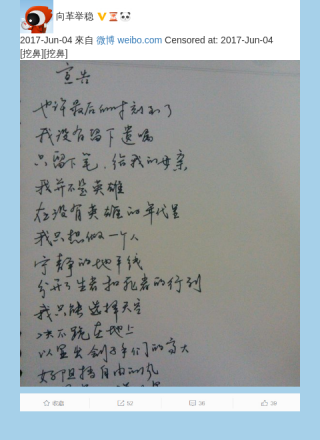 向革举稳
2017-Jun-04 來自 微博 weibo.com Censored at: 2017-Jun-04
[挖鼻][挖鼻]
宣告
也许最后的时刻到了
我没有留下遗嘱
只留下笔，给我的母亲
我并不是英雄
在没有英雄的年代里
我只想做一个人
宁静的地平线
分开了生者和死者的行列
我只能选择天空
决不跪在地上
以显出刽子手们的高大
好阻挡自由的风
收藏 52 26 39